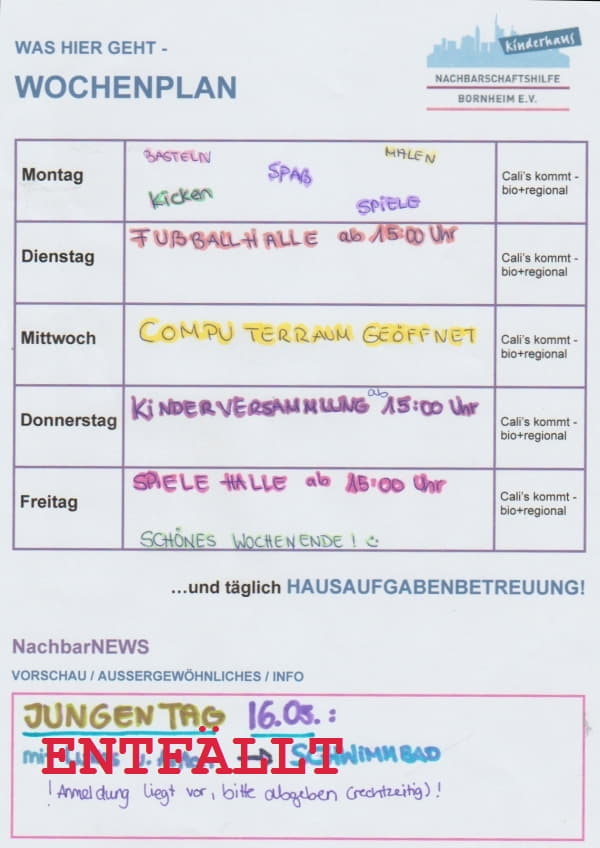 WAS HIER GEHT -
WOCHENPLAN
Kinderhaus
NACHBARSCHAFTSHILFE
BORNHEIM E.V.
Montag
BASTELN
SPAß
MALEN
Kicken
SPIELE
Cali's kommt -
bio+regional
Dienstag
FUßBALLHALLE ab 15:00 Uhr
Cali's kommt -
bio+regional
Mittwoch
COMPUTERRAUM GEÖFFNET
Cali's kommt -
bio+regional
Donnerstag
KINDERVERSAMMLUNG ab 15:00 Uhr
Cali's kommt -
bio+regional
Freitag
SPIELE HALLE ab 15:00 Uhr
SCHÖNES WOCHENENDE!
Cali's kommt -
bio+regional
...und täglich HAUSAUFGABENBETREUUNG!
NachbarNEWS
VORSCHAU / AUSSERGEWÖHNLICHES / INFO
JUNGENTAG 16.03.:
ENTFÄLLT
mit SCHWIMMBAD
! Anmeldung liegt vor, bitte abgeben (rechtzeitig)!